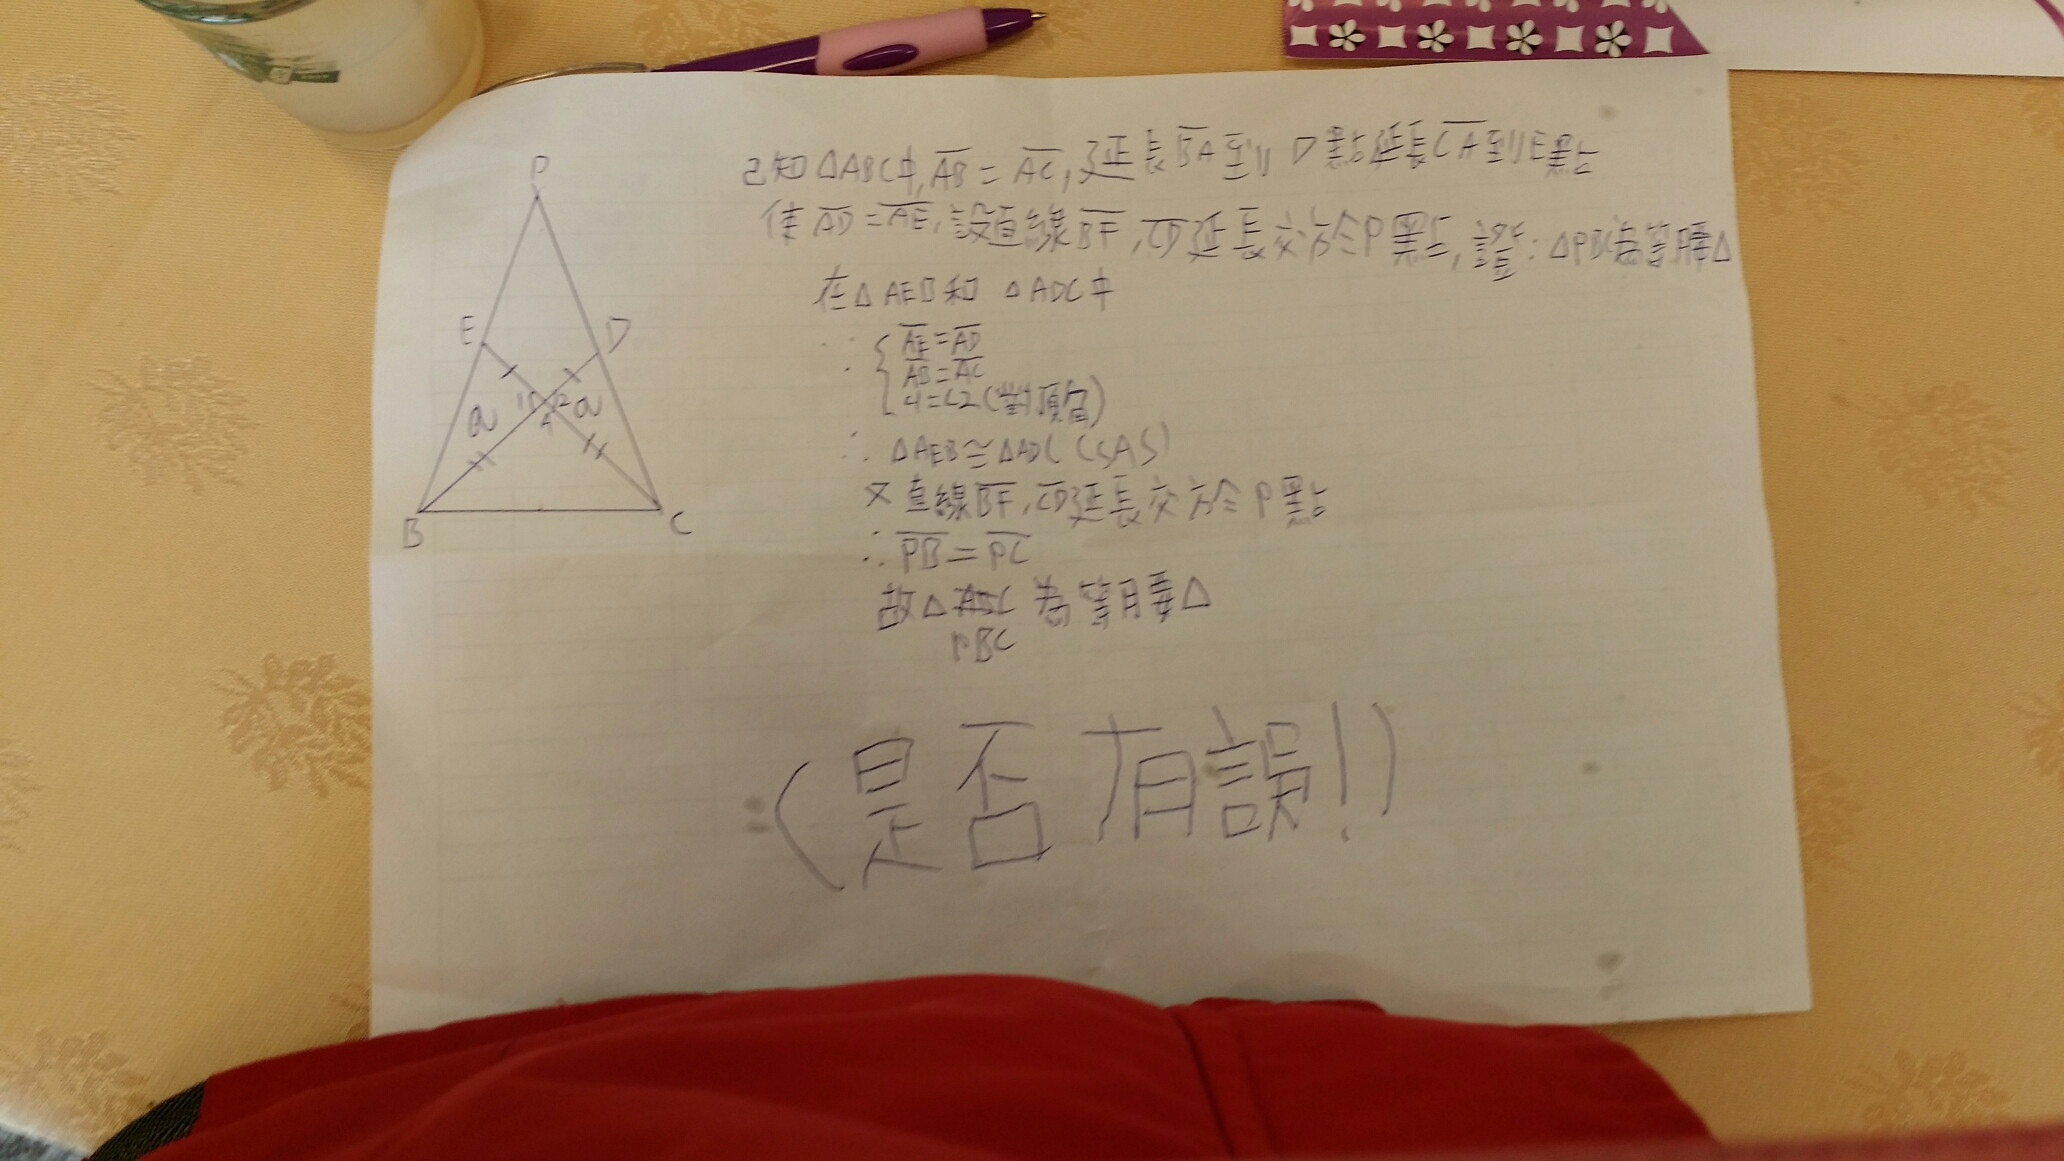 P
E
D
1
2
A
B
C
已知△ABC中,AB=AC,延長BA到D點延長CA到E點
使AD=AE,設直線BF,CD延長交於P點,證:△PBC為等腰△
在△AEB和△ADC中
∵{AE=AD
AB=AC
∠1=∠2(對頂角)
∴△AEB≅△ADC(SAS)
又直線BF,CD延長交於P點
∴PB=PC
故△ABC為等腰△
PBC
(是否有誤!)